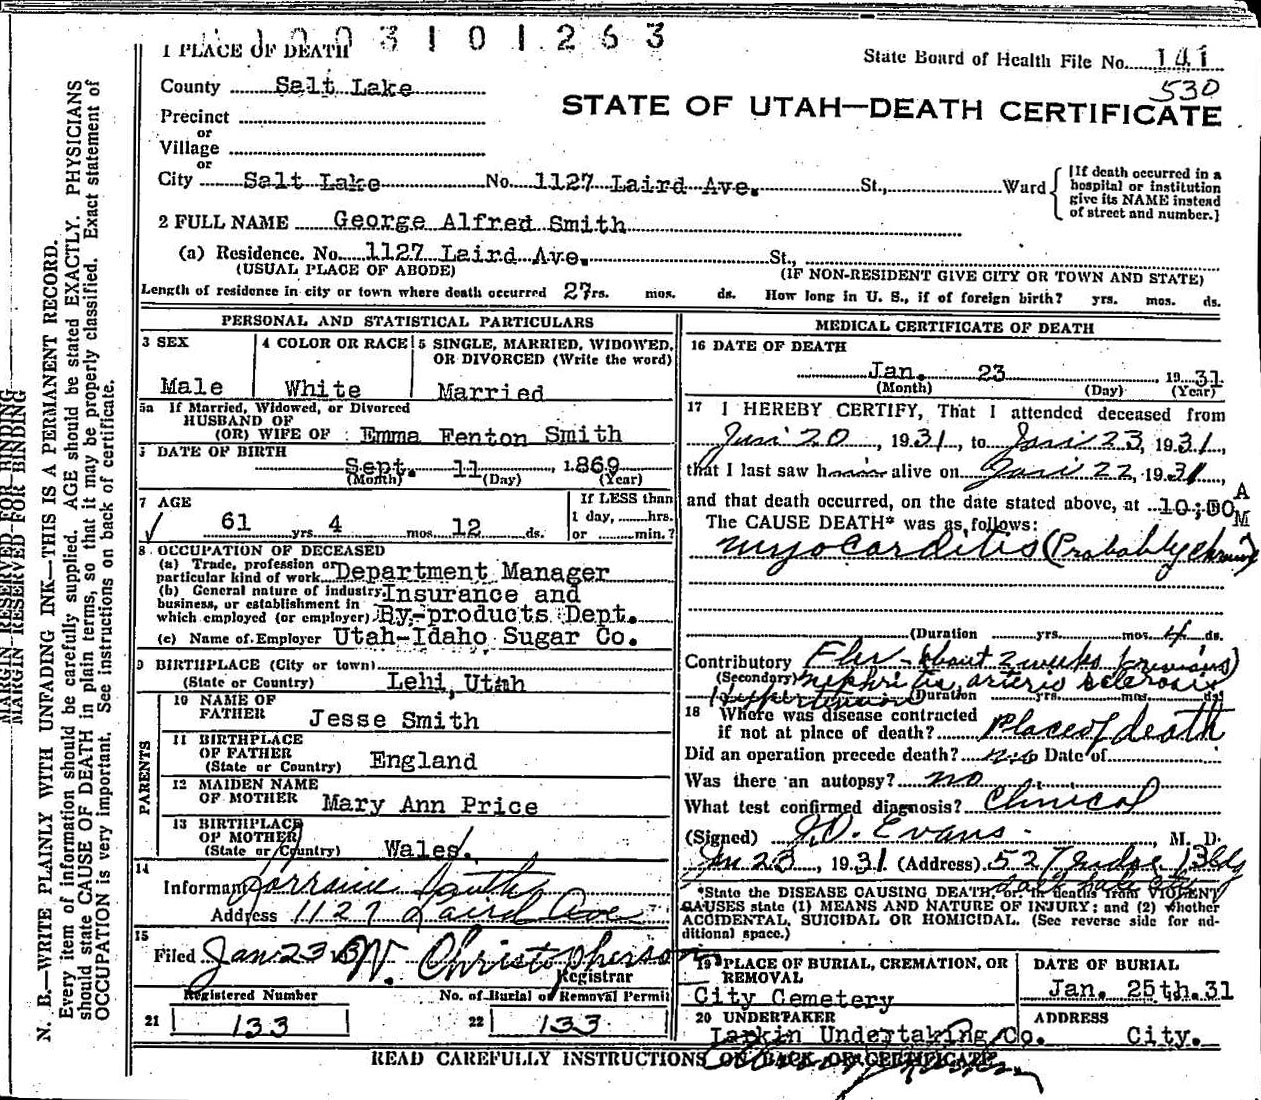 1003101263
1 PLACE OF DEATH
State Board of Health File No. 141
530
County Salt Lake
STATE OF UTAH—DEATH CERTIFICATE
Precinct
or
Village
or
City Salt Lake No. 1127 Laird Ave. St., Ward
[If death occurred in a hospital or institution give its NAME instead of street and number.]
2 FULL NAME George Alfred Smith
(a) Residence. No. 1127 Laird Ave. St.,
(USUAL PLACE OF ABODE) (IF NON-RESIDENT GIVE CITY OR TOWN AND STATE)
Length of residence in city or town where death occurred 27rs. mos. ds. How long in U. S., if of foreign birth? yrs. mos. ds.
PERSONAL AND STATISTICAL PARTICULARS
3 SEX
Male
4 COLOR OR RACE
White
5 SINGLE, MARRIED, WIDOWED,
OR DIVORCED (Write the word)
Married
5a If Married, Widowed, or Divorced
HUSBAND OF
(OR) WIFE OF Emma Fenton Smith
DATE OF BIRTH
Sept. 11, 1869
(Month) (Day) (Year)
7 AGE
61 yrs. 4 mos. 12 ds.
If LESS than
1 day, hrs.
or min.?
8 OCCUPATION OF DECEASED
(a) Trade, profession or
particular kind of work Department Manager
(b) General nature of industry, Insurance and
business, or establishment in
which employed (or employer) By-products Dept.
(c) Name of Employer Utah-Idaho Sugar Co.
9 BIRTHPLACE (City or town)
(State or Country) Lehi, Utah
PARENTS
10 NAME OF
FATHER Jesse Smith
11 BIRTHPLACE
OF FATHER
(State or Country) England
12 MAIDEN NAME
OF MOTHER Mary Ann Price
13 BIRTHPLACE
OF MOTHER
(State or Country) Wales.
14
Informant Lorraine Smith
Address 1127 Laird Ave
15
Filed Jan 23 31 W. Christopherson
Registrar
Registered Number No. of Burial or Removal Permit
21 133 22 133
MEDICAL CERTIFICATE OF DEATH
16 DATE OF DEATH
Jan. 23 1931
(Month) (Day) (Year)
17 I HEREBY CERTIFY, That I attended deceased from
Jan 20, 1931, to Jan 23, 1931,
that I last saw him alive on Jan 22, 1931,
and that death occurred, on the date stated above, at 10:00 A M
The CAUSE DEATH* was as follows:
myocarditis (Probably Chronic)
(Duration yrs. mos. 4 ds.
Contributory Flu - about 2 weeks previous)
(Secondary) nephritis, arterio sclerosis
Hypertension (Duration yrs. mos. ds.
18 Where was disease contracted
if not at place of death? Place of death
Did an operation precede death? no Date of
Was there an autopsy? no
What test confirmed diagnosis? Clinical
(Signed) J.D. Evans, M. D.
Jan 23, 1931 (Address) 527 Judge Bldg
Salt Lake City
*State the DISEASE CAUSING DEATH, or in deaths from VIOLENT
CAUSES state (1) MEANS AND NATURE OF INJURY; and (2) whether
ACCIDENTAL, SUICIDAL OR HOMICIDAL. (See reverse side for ad-
ditional space.)
19 PLACE OF BURIAL, CREMATION, OR
REMOVAL
City Cemetery
DATE OF BURIAL
Jan. 25th.31
20 UNDERTAKER
Larkin Undertaking Co.
ADDRESS
City.
READ CAREFULLY INSTRUCTIONS ON BACK OF CERTIFICATE
MARGIN RESERVED FOR BINDING
MARGIN RESERVED FOR BINDING
N. B.—WRITE PLAINLY WITH UNFADING INK—THIS IS A PERMANENT RECORD.
Every item of information should be carefully supplied. AGE should be stated EXACTLY. PHYSICIANS
should state CAUSE OF DEATH in plain terms, so that it may be properly classified. Exact statement of
OCCUPATION is very important. See instructions on back of certificate.